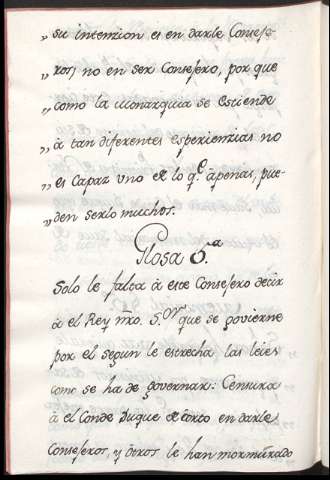 „ su intenzion es en darle Conseje-
„ ros, no en ser Consejero, por que
„ como la monarquia se estiende
„ à tan diferentes esperienzias no
„ es Capaz uno de lo q.e apenas, pue-
„ den serlo muchos.
Glosa 5.a
Solo le falta à este Consejero decir
à el Rey nr̃o. S.or que se govierne
por el segun le estrecha, las leies
como se ha de governar: Censura
à el Conde Duque de corto en darle
Consejeros, y otros le han mormurado